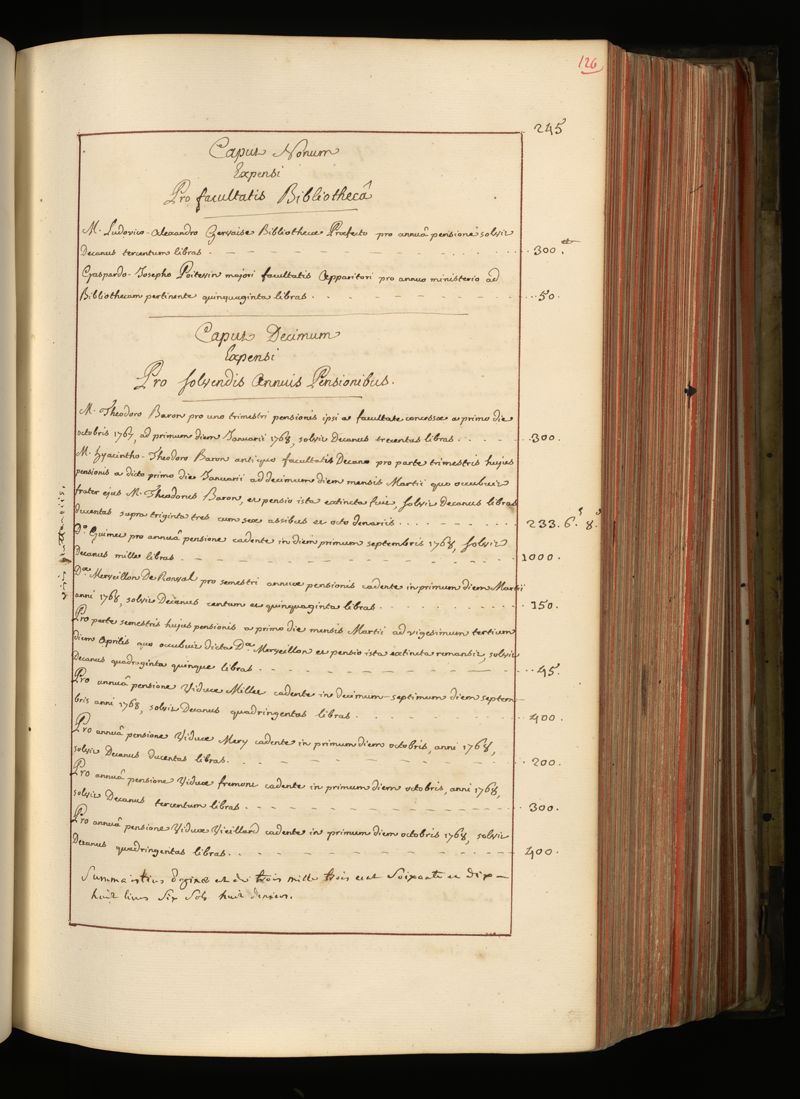 126
245
Caput Nonum
Expensi
Pro facultatis Bibliothecâ
M. Ludovico-Alexandro Gervaise Bibliothecæ Præfecto pro annuâ pensione solvit
Decanus tercentum libras . 300.
Gaspardo-Josepho Poitevin majori facultatis Apparitori pro annuo ministerio ad
Bibliothecam pertinente quinquaginta libras . 50.
Caput Decimum
Expensi
Pro solvendis Annuis Pensionibus.
M. Theodoro Baron pro uno trimestri pensionis ipsi a facultate concessæ a primo die
octobris 1767, ad primum diem Januarii 1768, solvit Decanus trecentas libras . 300.
M. Hyacintho-Theodoro Baron antiquo facultatis Decano pro parte trimestris hujus
pensionis a dicto primo die Januarii ad decimum diem mensis Martii quo occubuit
frater ejus M. Theodorus Baron, et pensio ista extincta fuit, solvit Decanus libras
ducentas supra triginta tres cum sex assibus et octo denariis . 233. 6.s 8.d
Dæ Guimer pro annuâ pensione cadente in diem primum septembris 1768, solvit
Decanus mille libras . 1000.
Dæ Merveillon De Ronsal pro semestri annuæ pensionis cadente in primum diem Martii
anni 1768, solvit Decanus centum et quinquaginta libras . 150.
Pro parte semestris hujus pensionis a primo die mensis Martii ad vigesimum tertium
diem Aprilis quo occubuit dicta Da Merveillon et pensio ista extincta remansit, solvit
Decanus quadraginta quinque libras . 45.
Pro annuâ pensione Viduæ Millet cadente in decimum-septimum diem septem-
bris anni 1768, solvit Decanus quadringentas libras . 400.
Pro annuâ pensione Viduæ Mery cadente in primum diem octobris, anni 1768,
solvit Decanus ducentas libras . 200.
Pro annuâ pensione Viduæ fremont cadente in primum diem octobris, anni 1768,
solvit Decanus tercentum libras . 300.
Pro annuâ pensione Viduæ Vieillard cadente in primum diem octobris 1768, solvit
Decanus quadringentas libras . 400.
Summa istius paginæ est de trois mille trois cent Soixante et dix-
huit livres Six Sols huit deniers.